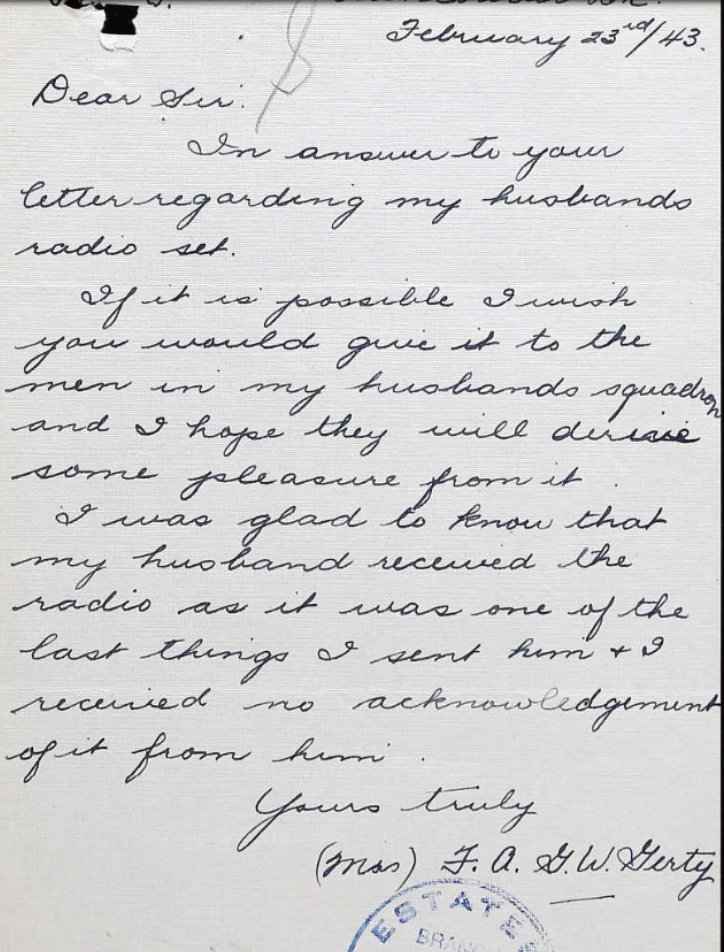 February 23rd/43.
Dear Sir.
In answer to your
letter regarding my husbands
radio set.
If it is possible I wish
you would give it to the
men in my husbands squadron
and I hope they will derive
some pleasure from it.
I was glad to know that
my husband received the
radio as it was one of the
last things I sent him + I
received no acknowledgement
of it from him.
Yours truly
(Mrs) F. A. G. W. Gerty
ESTATES